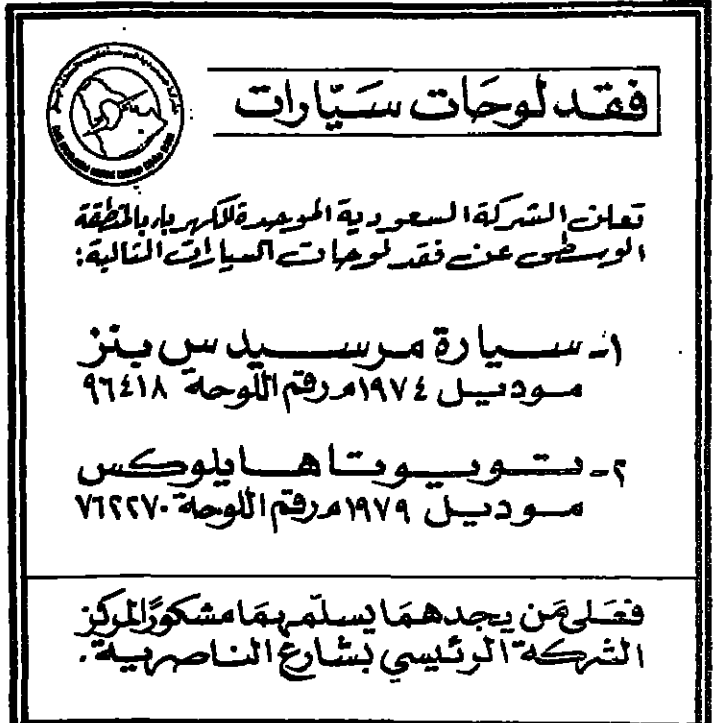 فقد لوحات سيّارات
تعلن الشركة السعودية الموحدة للكهرباء بالمنطقة
الوسطى عن فقد لوحات السيارات التالية:
١- سيارة مرسيدس بنز
موديل ١٩٧٤م رقم اللوحة ٩٦٤١٨
٢- تويوتا هايلوكس
موديل ١٩٧٩م رقم اللوحة ٧٦٢٢٧٠
فعَلى مَن يجدهمَا يسلّمهمَا مشكورًا لمركز
الشركة الرئيسي بشارع الناصرية.